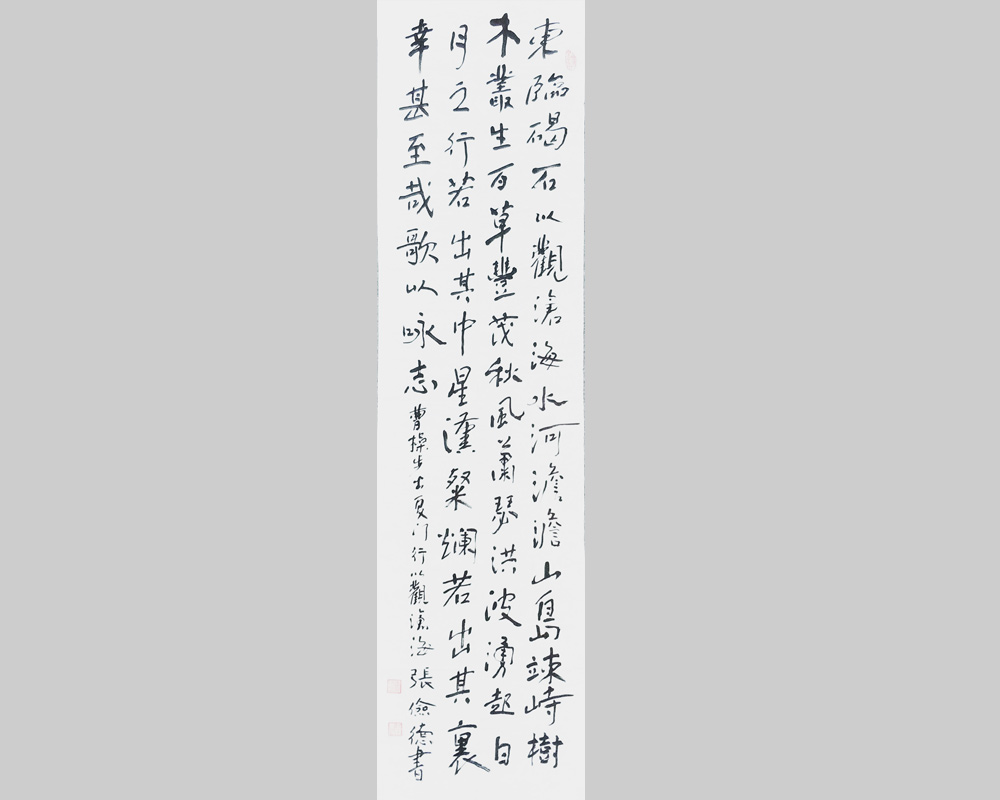 東臨碣石以觀滄海水河澹澹山島竦峙樹
木叢生百草豐茂秋風蕭瑟洪波湧起日
月之行若出其中星漢燦爛若出其裏
幸甚至哉歌以咏志曹操步出夏门行以觀滄海張儉德書